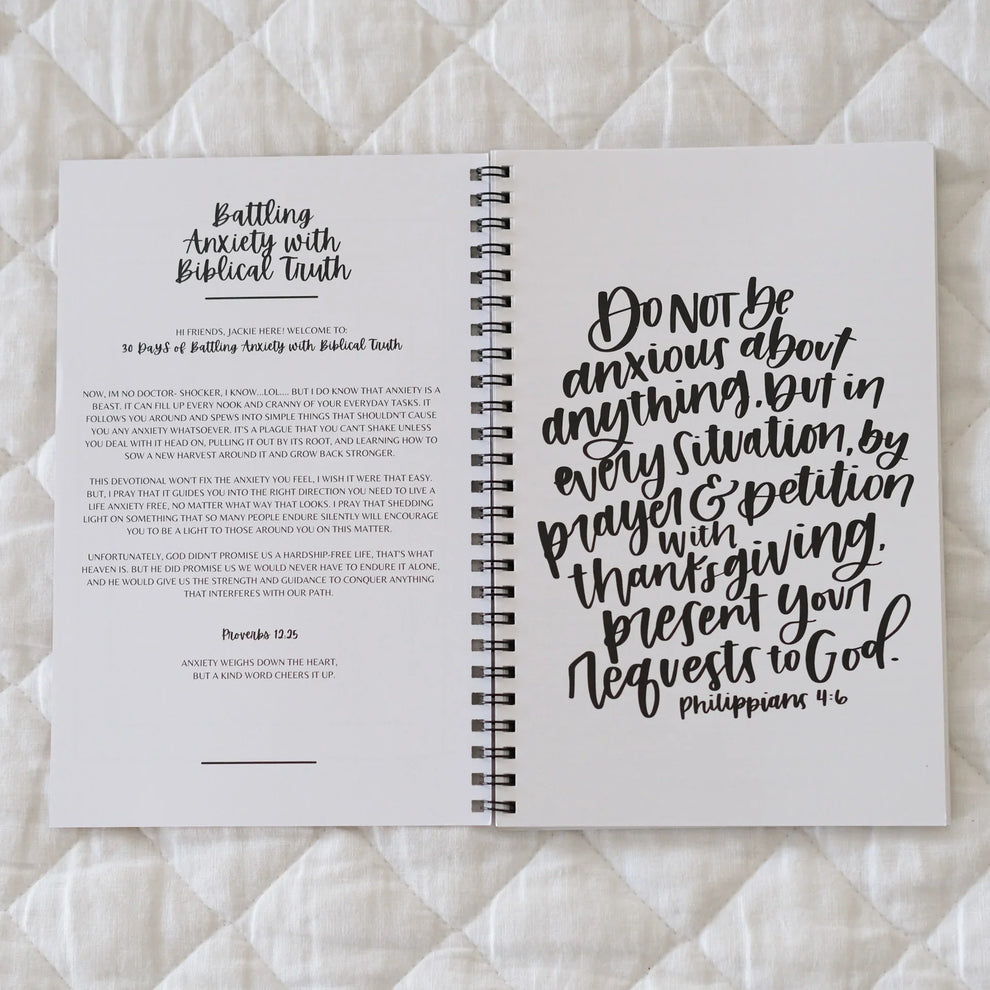 Battling
Anxiety with
Biblical Truth
HI FRIENDS, JACKIE HERE! WELCOME TO:
30 DAYS of Battling Anxiety with Biblical Truth
NOW, IM NO DOCTOR- SHOCKER, I KNOW...LOL.... BUT I DO KNOW THAT ANXIETY IS A
BEAST. IT CAN FILL UP EVERY NOOK AND CRANNY OF YOUR EVERYDAY TASKS. IT
FOLLOWS YOU AROUND AND SPEWS INTO SIMPLE THINGS THAT SHOULDN'T CAUSE
YOU ANY ANXIETY WHATSOEVER. IT'S A PLAGUE THAT YOU CAN'T SHAKE UNLESS
YOU DEAL WITH IT HEAD ON, PULLING IT OUT BY ITS ROOT, AND LEARNING HOW TO
SOW A NEW HARVEST AROUND IT AND GROW BACK STRONGER.
THIS DEVOTIONAL WON'T FIX THE ANXIETY YOU FEEL, I WISH IT WERE THAT EASY.
BUT, I PRAY THAT IT GUIDES YOU INTO THE RIGHT DIRECTION YOU NEED TO LIVE A
LIFE ANXIETY FREE, NO MATTER WHAT WAY THAT LOOKS. I PRAY THAT SHEDDING
LIGHT ON SOMETHING THAT SO MANY PEOPLE ENDURE SILENTLY WILL ENCOURAGE
YOU TO BE A LIGHT TO THOSE AROUND YOU ON THIS MATTER.
UNFORTUNATELY, GOD DIDN'T PROMISE US A HARDSHIP-FREE LIFE, THAT'S WHAT
HEAVEN IS. BUT HE DID PROMISE US WE WOULD NEVER HAVE TO ENDURE IT ALONE,
AND HE WOULD GIVE US THE STRENGTH AND GUIDANCE TO CONQUER ANYTHING
THAT INTERFERES WITH OUR PATH.
Proverbs 12.25
ANXIETY WEIGHS DOWN THE HEART,
BUT A KIND WORD CHEERS IT UP.
Do NOT be
anxious about
anything, but in
every situation, by
prayer & petition
with
thanksgiving,
present your
requests to God.
Philippians 4:6